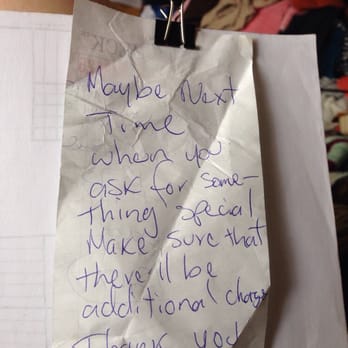 Maybe Next
Time
when you
ask for some-
thing special
Make sure that
there'll be
additional charge
Thank you